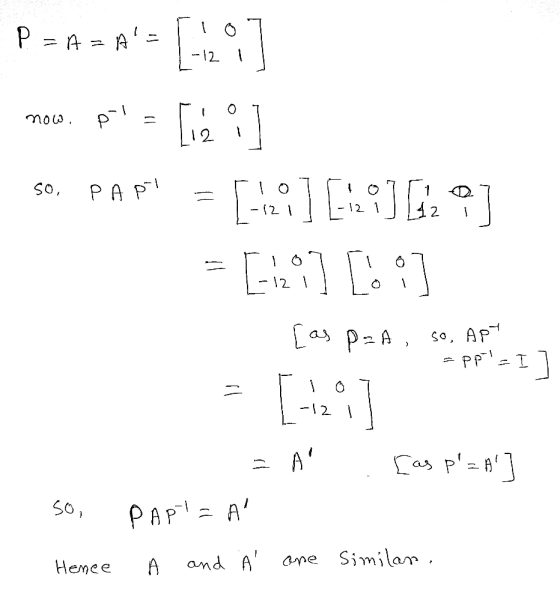 P = A = A' = [1 0 -12 1]
now. P⁻¹ = [1 0 12 1]
so, P A P⁻¹ = [1 0 -12 1] [1 0 -12 1] [1 0 12 1]
= [1 0 -12 1] [1 0 0 1]
[as P=A, so, AP⁻¹
= PP⁻¹ = I]
= [1 0 -12 1]
= A' [as P'=A']
so, PAP⁻¹ = A'
Hence A and A' are Similar.